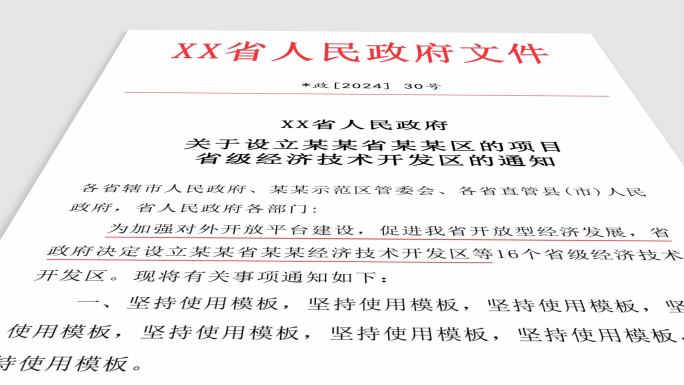 XX省人民政府文件
*政[2024] 30号
XX省人民政府
关于设立某某省某某区的项目
省级经济技术开发区的通知
各省辖市人民政府、某某示范区管委会、各省直管县(市)人民
政府，省人民政府各部门：
为加强对外开放平台建设，促进我省开放型经济发展，省
政府决定设立某某省某某经济技术开发区等16个省级经济技术
开发区。现将有关事项通知如下：
一、坚持使用模板，坚持使用模板，坚持使用模板，坚
使用模板，坚持使用模板，坚持使用模板，坚持使用模板，
持使用模板。